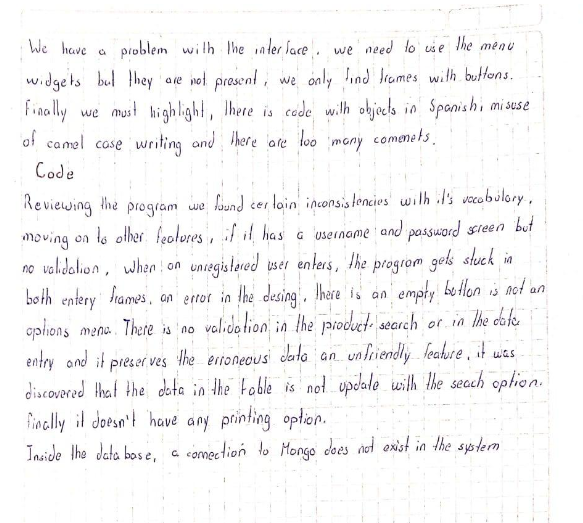 We have a problem with the interface. we need to use the menu
widgets but they are not present, we only find frames with buttons.
Finally we must highlight, there is code with objects in Spanish, misuse
of camel case writing and there are too many comenets.
Code
Reviewing the program we found certain inconsistencies with it's vocabulary,
moving on to other features, if it has a username and password screen but
no validation, when an unregistered user enters, the program gets stuck in
both entery frames, an error in the desing, there is an empty button is not an
options menu. There is no validation in the product search or in the date
entry and it preserves the erroneous data an unfriendly feature, it was
discovered that the data in the table is not update with the seach option.
finally it doesn't have any printing option.
Inside the database, a connection to Mongo does not exist in the system